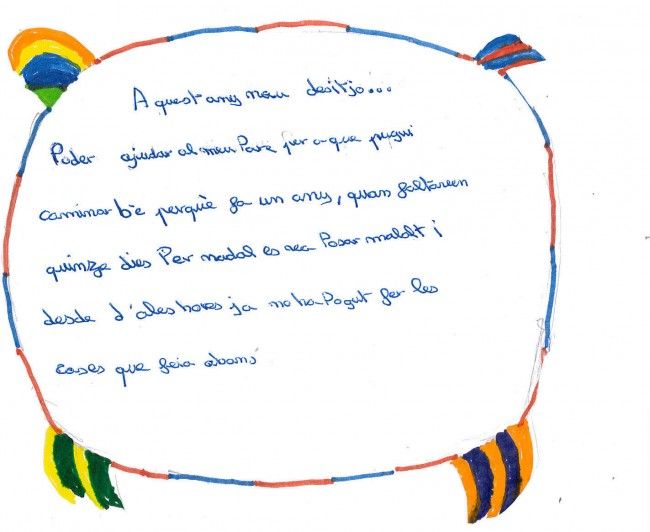 Aquest any nou desitjo...
Poder ajudar al meu Pare per a que pugui
caminar bè perquè fa un any, quan faltaven
quinze dies Per nadal es va Posar malalt i
desde d'aleshores ja no ha Pogut fer les
coses que feia abans